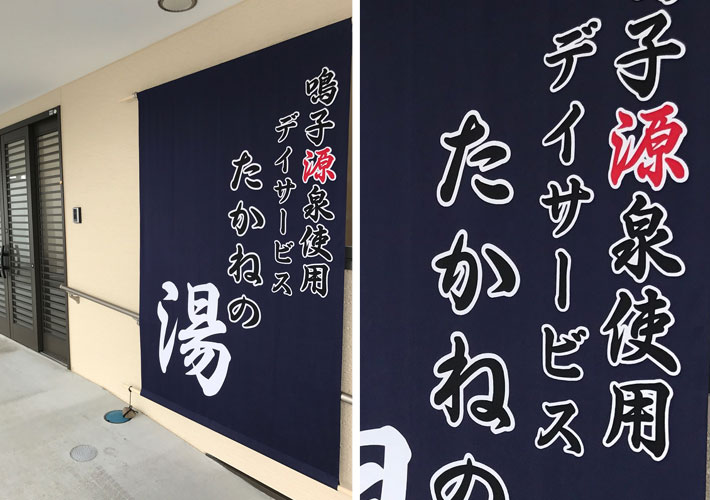 鳴子源泉使用
デイサービス
たかねの
湯
子源泉使用
デイサービス
たかねの